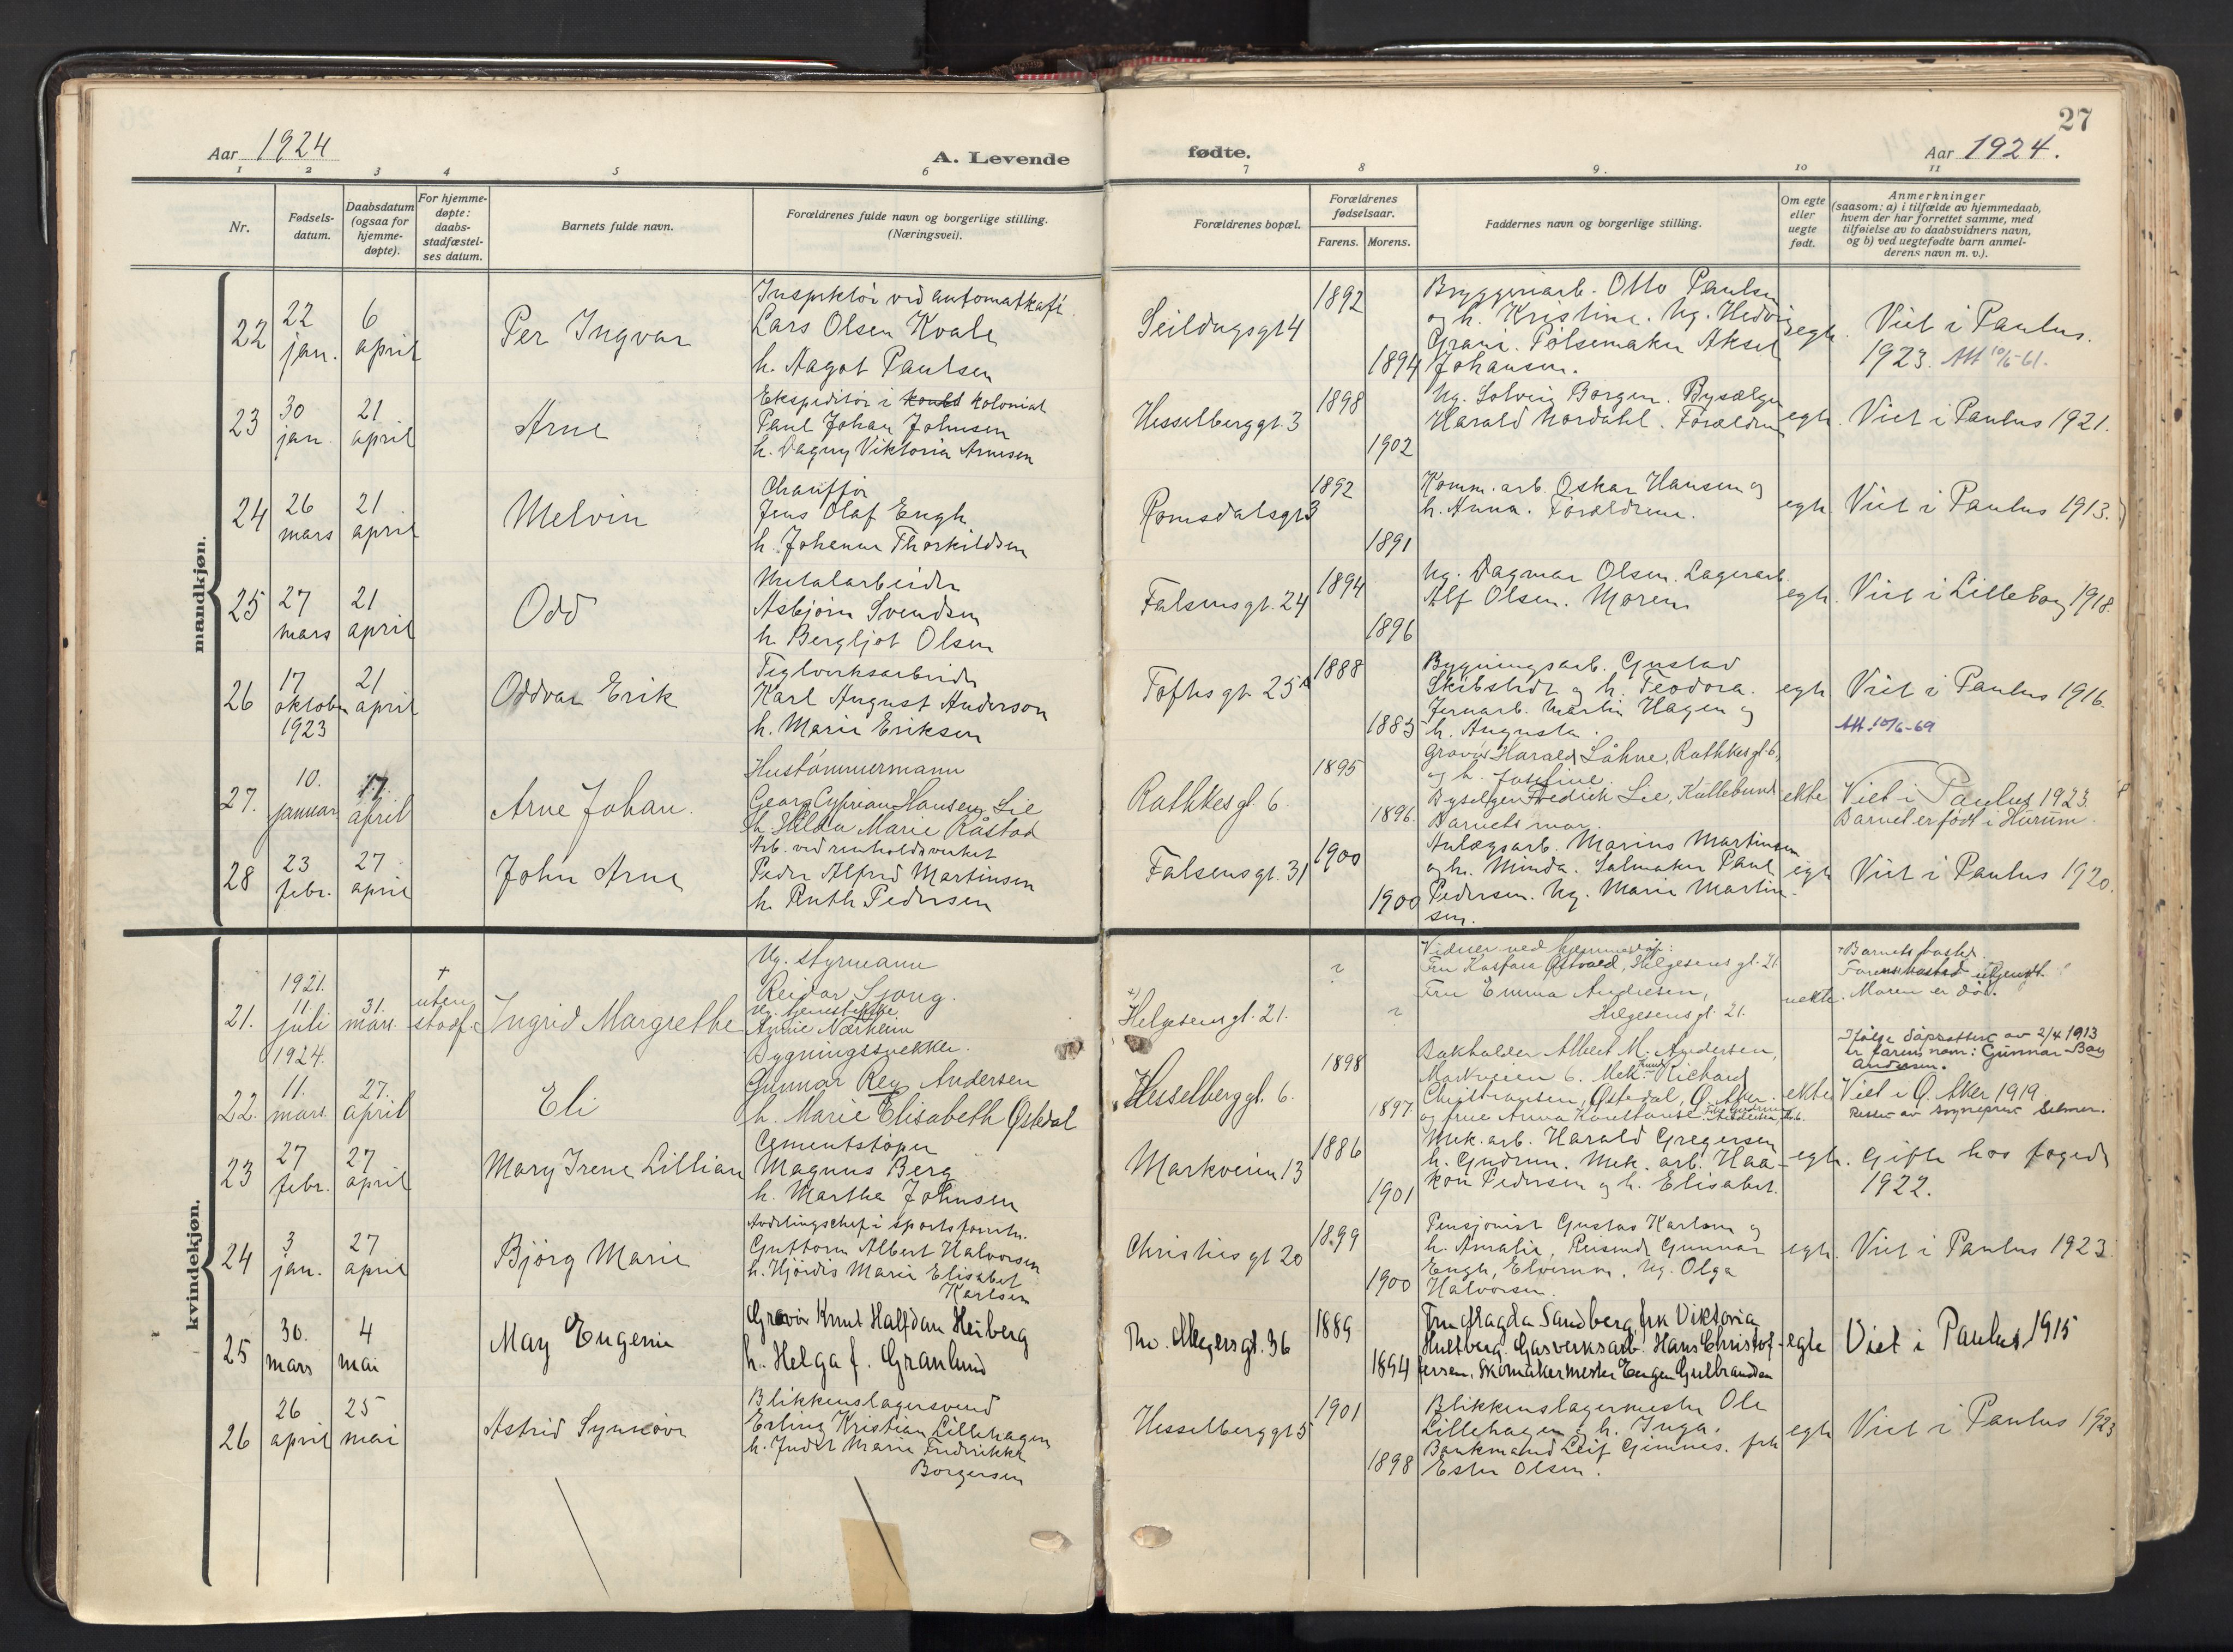 27
Aar 1924
A. Levende
fødte.
Aar 1924.
1 2 3 4 5 6
7 8 9. 10 11
Nr.
Fødsels-
datum.
Daabsdatum
(ogsaa for
hjemme-
døpte).
For hjemme-
døpte:
daabs-
stadfæstel-
ses datum.
Barnets fulde navn.
Forældrenes fulde navn og borgerlige stilling.
(Næringsvei).
Forældrenes bopæl.
Forældrenes
fødselsaar.
Farens. Morens.
Faddernes navn og borgerlige stilling.
Om egte
eller
uegte
født.
Anmerkninger
(saasom: a) i tilfælde av hjemmedaab,
hvem der har forrettet samme, med
tilføielse av to daabsvidners navn,
og b) ved uegtefødte barn anmel-
derens navn m. v.).
mandkjøn.
22
22
jan.
6
april
Per Ingvar
Inspektør ved automatkafé
Lars Olsen Kvale
h. Aagot Paulsen
Seildugsgt 4
1892
1894
Bryggeriarb. Otto Paulsen
og h. Kristine. Ug. Hedvig
Grani. Pølsemaker Aksel
Johansen.
egte.
Viet i Paulus.
1923. Att 10/5-61.
23
30
jan.
21
april
Arne
Ekspeditør i kolonial
Paul Johan Johnsen
h. Dagny Viktoria Arnesen
Hesselberggt. 3
1898
1902
Ug. Solveig Borgen. Bysælger
Harald Nordahl. Forældrene
egte.
Viet i Paulus 1921.
24
26
mars
21
april
Melvin
Chauffør
Jens Olaf Engh
h. Johanne Thorkildsen
Romsdalsgt 3
1892
1891
Komm. arb. Oskar Hansen og
h. Anna. Forældrene.
egte
Viet i Paulus 1913.
25
27
mars
21
april
Odd
Metalarbeider
Asbjørn Svendsen
h. Bergljot Olsen
Falsensgt. 24
1894
1896
Ug. Dagmar Olsen. Lagerarb.
Alf Olsen. Moren
egte.
Viet i Lilleborg 1918
26
17
oktober
1923
21
april
Oddvar Erik
Teglverksarbeider
Karl August Anderson
h. Marie Eriksen
Toftesgt. 25 A
1888
1883
Bygningsarb. Gustav
Skibstedt og h. Teodora.
Jernarb. Martin Hagen og
h. Augusta.
egte
Viet i Paulus 1916.
Att. 10/6-69
27.
10.
januar
17.
april
Arne Johan.
Hustømmermann
Georg Cyprian Hansen Lie
h. Hilda Marie Råstad
Rathkesgt. 6.
1895
1896.
Gravør Harald Låhne, Rathkesgt. 6,
og h. Josefine.
Byselger Fredrich Lie, Kullebund
Barnets mor.
ekte
Viet i Paulus 1923
Barnet er født i Hurum.
28
23
febr.
27
april
John Arne
Arb. ved renholdsverket
Peder Alfred Martinsen
h. Ruth Pedersen
Falsensgt. 31
1900
1900
Anlægsarb. Marius Martinsen
og h. Minda. Salmaker Paul
Pedersen. Ug. Marie Martin-
sen.
egte
Viet i Paulus 1920.
kvindekjøn.
21.
1921.
11.
juli
31.
mars.
+
uten
stadf.
Ingrid Margrethe
Ug. styrmann
Reidar Sjong.
Ug. tjenestepike
Aznie Nærheim
+)
Helgesens gt. 21.
?
?
Vidner ved hjemmedåp:
Fru Østvold, Helgesens gt. 21
Fru Emma Andresen,
Helgesens gt. 21.
uekte.
+ Barnets bosted.
Farens bosted ukjendt.
Moren er død.
22.
1924.
11.
mars.
27.
april
Eli
Bygningssnekker.
Gunnar Rey Andersen
h. Marie Elisabeth Østedal
Hesselberggt. 6.
1898
1897.
Bokholder Albert M. Andersen,
Markveien 6. Mek. Richard
Christiansen, Østedal, Ø. Aker.
og frue Anna Konstanse
ekte
Ifølge dåpsattest av 2/4 1913
er farens navn: Gunnar Boy
Andersen.
Viet i Ø. Aker 1919
Rettet av sogneprest Selmer.
23
27
febr.
27
april
Mary Irene Lillian
Cementstøper
Magnus Berg
h. Marthe Johnsen
Markveien 13
1886
1901
Mek. arb. Harald Gregersen
h. Gudrun. Mek. arb. Haa-
kon Pedersen og h. Elisabet.
egte.
Gifte hos foged
1922.
24
3
jan.
27
april
Bjørg Marie
Avdelingschef i sportsforretn.
Guttorm Albert Halvorsen
h. Hjørdis Marie Elisabet
Karlsen
Christiesgt 20
1899
1900
Pensjonist Gustav Karlsen og
h. Amalie, Reisende Gunnar
Engh, Elverum. Ug. Olga
Halvorsen.
egte.
Viet i Paulus 1923
25
30.
mars
4
mai
May Eugenie
Gravør Knut Halfdan Heiberg
h. Helga f. Granlund
Th. Meyersgt. 36
1889
1894
Fru Magda Sandberg, frk Viktoria
Hultberg. Gasverksarb. Hans Christof-
fersen. Skomakermester Eugen Gulbrandsen
egte
Viet i Paulus 1915
26
26
april
25
mai
Astrid Synnøve
Blikkenslagersvend
Erling Kristian Lillehagen
h. Judit Marie Fredrikke
Borgersen
Hesselberggt 5
1901
1898
Blikkenslagermester Ole
Lillehagen og h. Inga.
Bankmand Leif Gimnes. frk
Ester Olsen.
egte
Viet i Paulus 1923